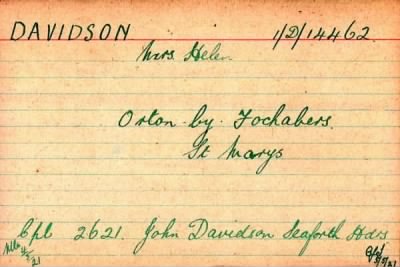 DAVIDSON 1/D/14462.
Mrs. Helen
Orton-by-Fochabers.
St Marys
Cpl 2621. John Davidson Seaforth Hdrs